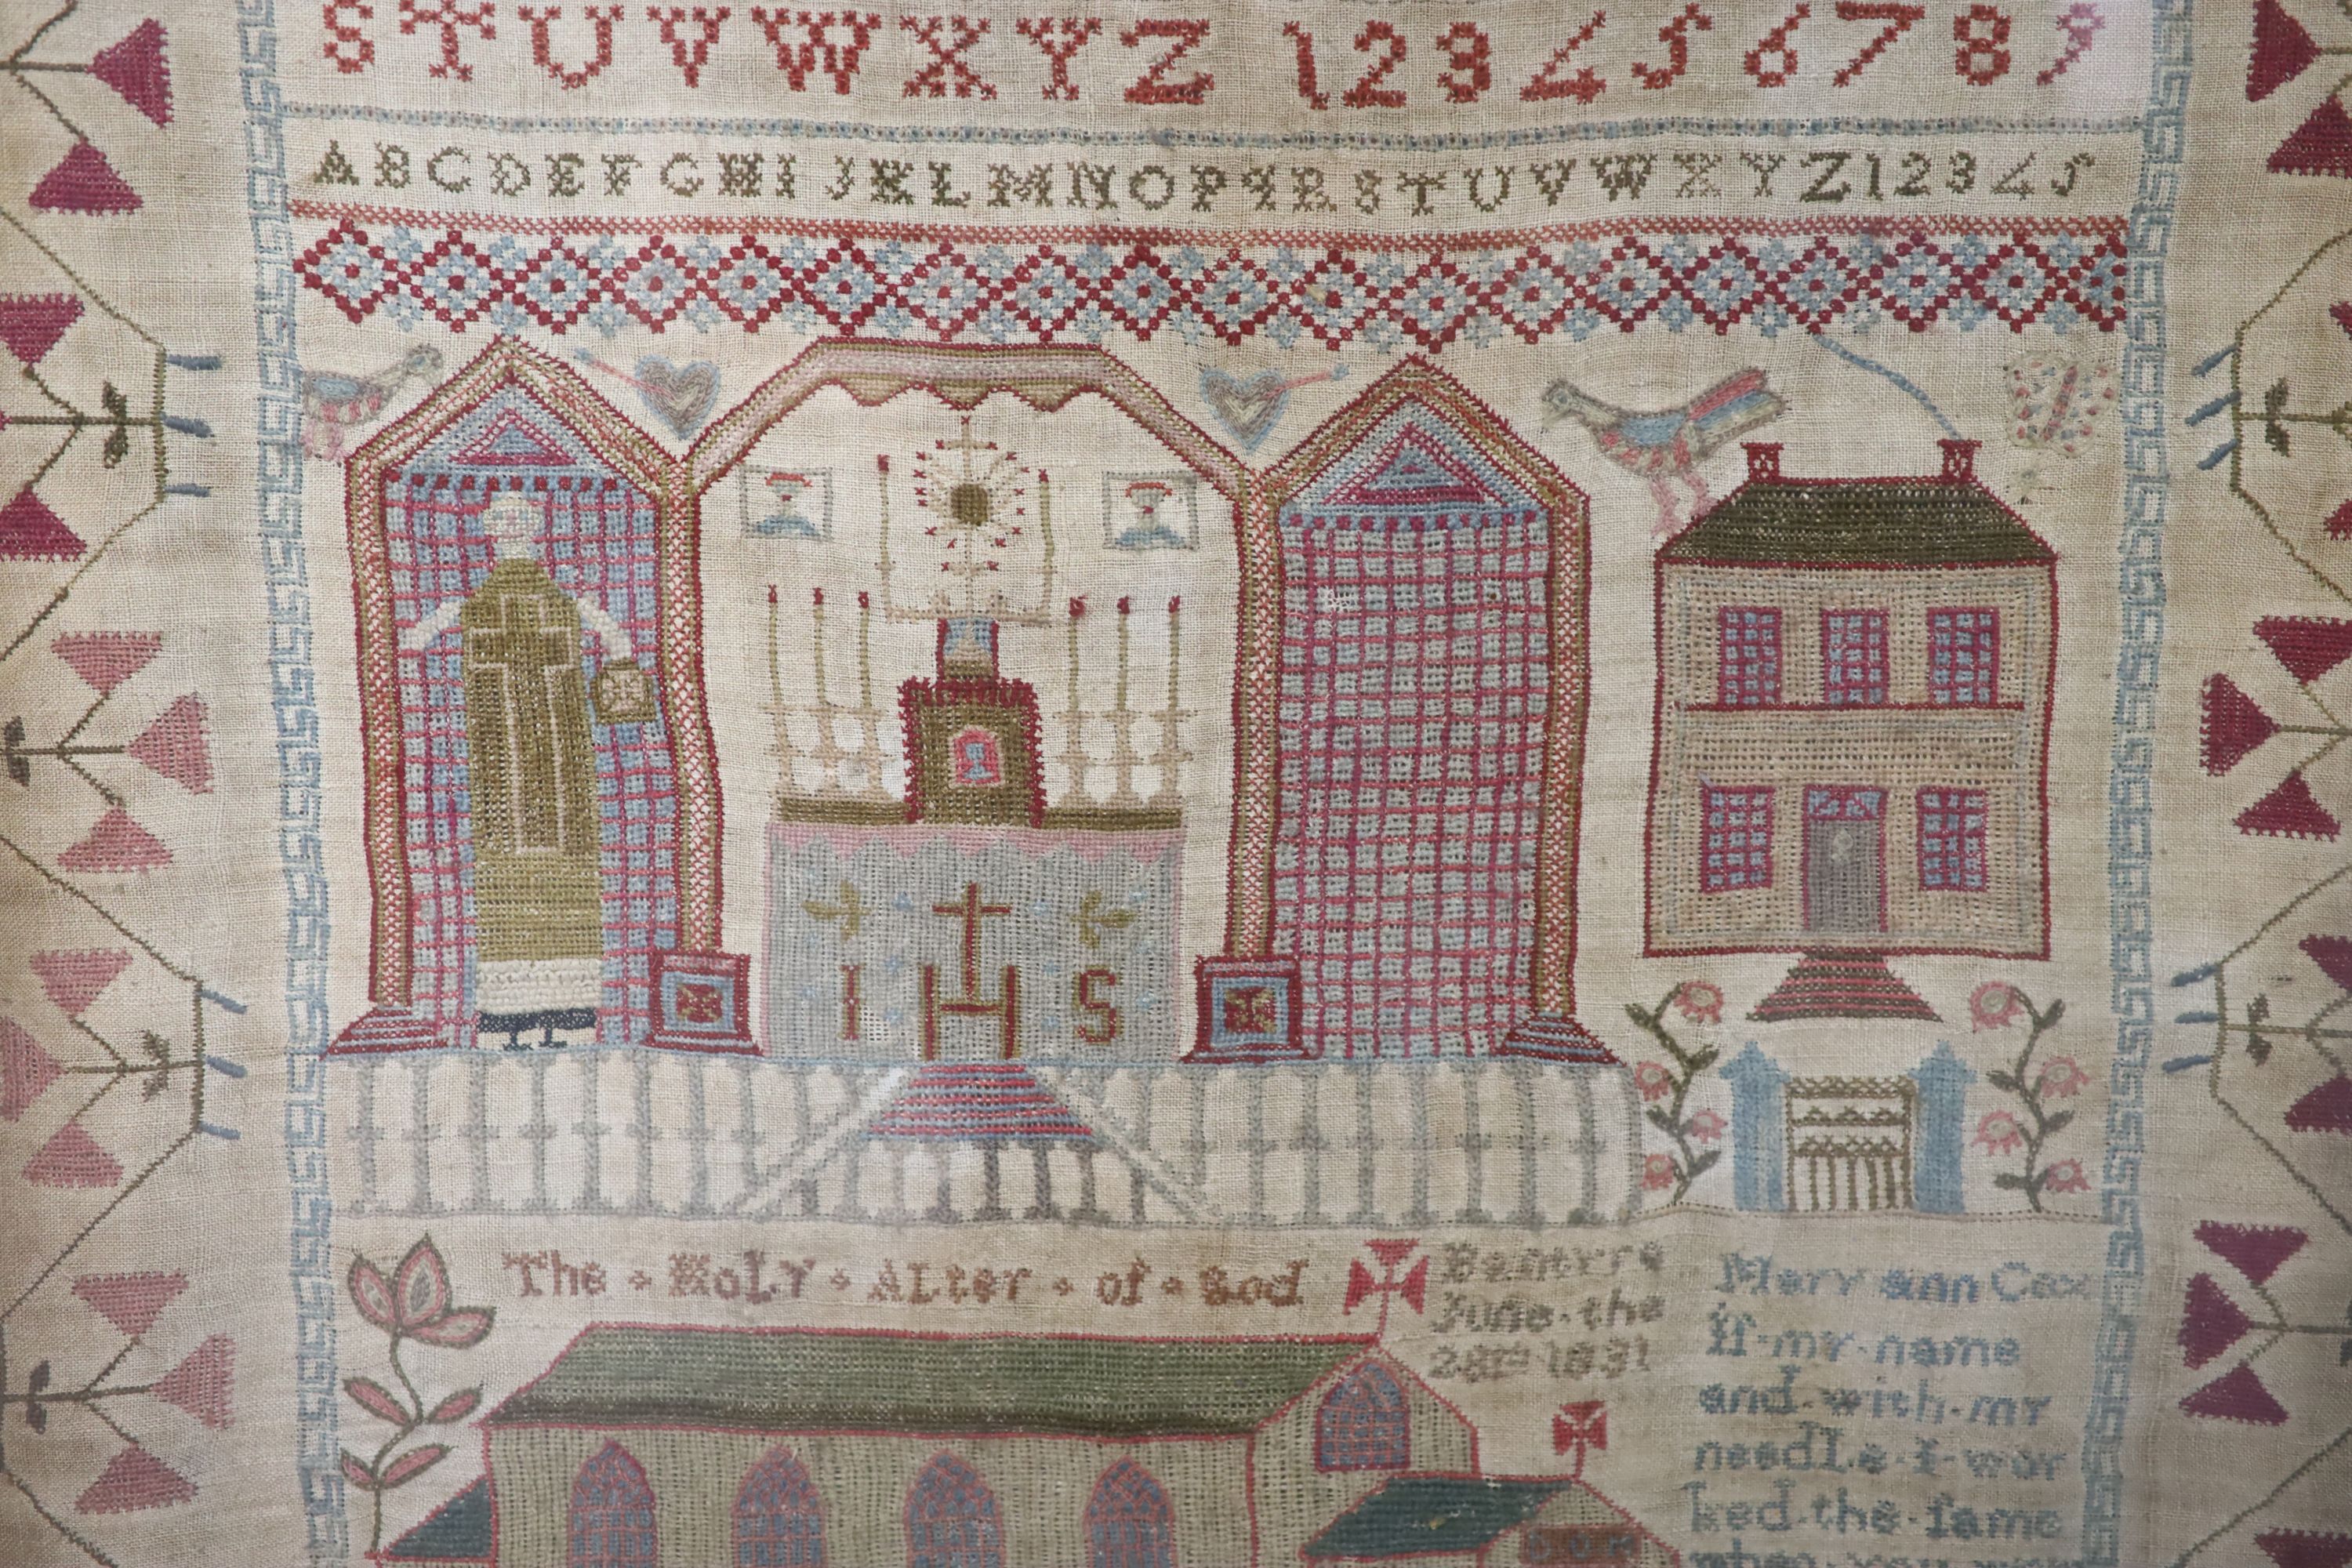 STUVWXYZ 123456789
ABCDEFGHIJKLMNOPQRSTUVWXYZ12345
IHS
The Holy Alter of God
June the
28th 1831
Mary ann Cox
if my name
and with my
needle I wor
ked the same
when you